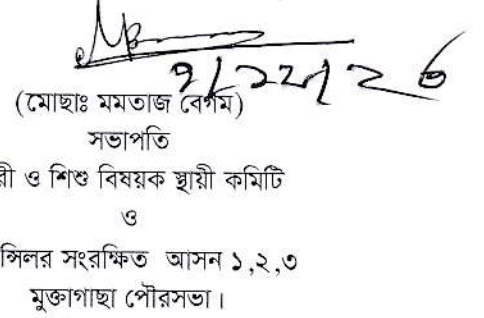 (মোছাঃ মমতাজ বেগম)
সভাপতি
রী ও শিশু বিষয়ক স্থায়ী কমিটি
ও
ন্সিলর সংরক্ষিত আসন ১,২,৩
মুক্তাগাছা পৌরসভা।